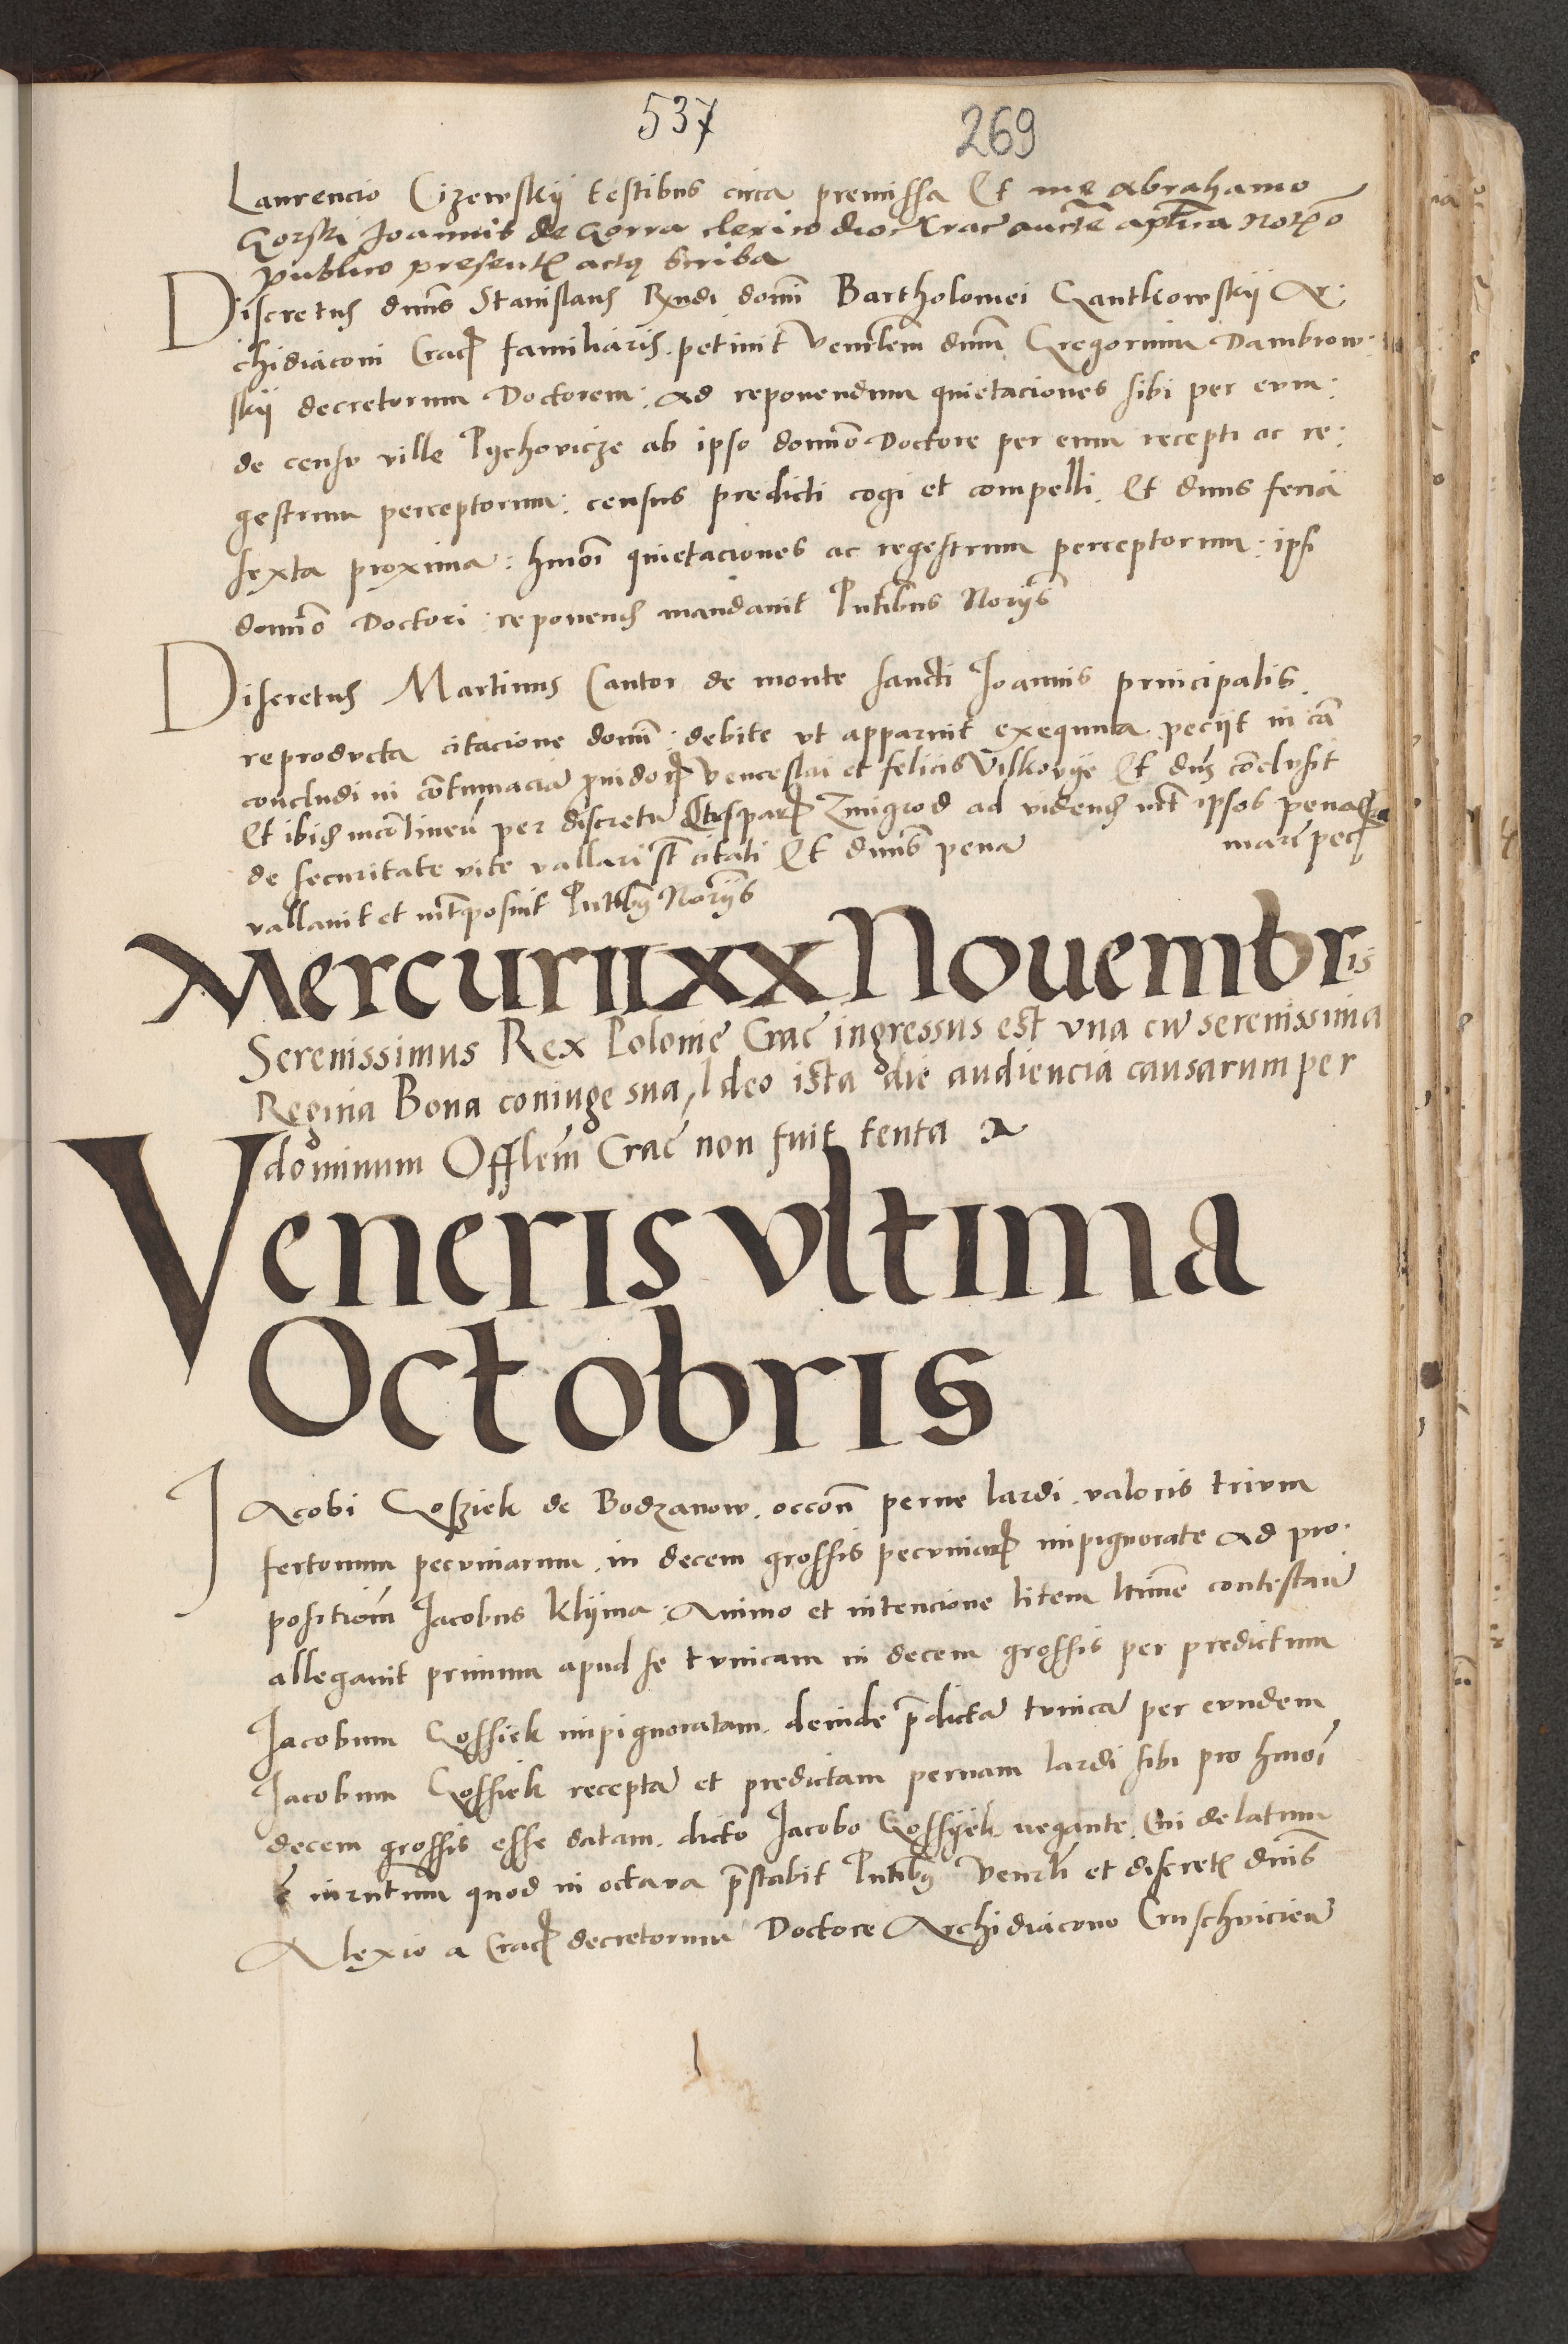 537 269
Laurencio Cizewskij testibus circa premissa Et me Abrahamo
Gorski Joannis de Gorra clerico dioc Crac̄ auctē aplica Notrō
publico presentꝭ actꝫ scriba
Discretus dnus Stanislaus Rndi domī Bartholomei Gantkowskij Ar:
chidiaconi Crac̄ familiaris. petiuit Venrlem dnum Gregorium Dambrow:
skij decretorum Doctorem: ad reponendum quietaciones sibi per eum:
de censu ville Pychovicze ab ipso domīo Doctore per eum recepti ac re:
gestrum perceptorum: census predicti cogi et compelli. Et dnus feria
sexta proxima: hmoī quietaciones ac regestrum perceptorum: ipsi
domīo Doctori: reponend mandauit Pntibus Norijs
Discretus Martinus Cantor de monte sancti Joannis principalis.
reproducta citacione domī: debite vt apparuit exequuta. peciit in cā
concludi in cōtumaciā Venceslai et felicis Viskovije Et dns cōclusit
Et ibid incōtinenti per discretū Zmigrod ad videnđ ipsos pena
mare pec
de securitate vite vallari st citati Et dnus pena
vallauit et posuit Pntibꝫ Norijs
Mercurii xx Nouembris
Serenissimus Rex Polonie Crac̄ ingressus est vna cū serenissima
Regina Bona coniuge sua, Ideo ista die audiencia causarum per
dominum Offlem Crac̄ non fuit tenta
Veneris vltima
Octobris
Jacobi Gosziek de Bodzanow. occōn perne lardi. valoris trium
fertonum pecuniarum. in decem grossis pecuniarꝝ impignorate Ad pro:
positiōm Jacobus Klijma: Animo et intencione litem ltime contestandi
allegauit primum apud se tunicam in decem grossis per predictum
Jacobum Gossiek impignoratam. deinde p̄dictā tunicā per eundem
Jacobum Gossiek receptā et predictam pernam lardi sibi pro hmoī
decem grossis esse datam. dicto Jacobo Gossijek negante. Cui delatum
ē iurntum quod in octaua p̄stabit Pntibꝫ Venrli et discretꝭ dnis
Alexio a Crac̄ decretorum Doctore Archidiacono Cruschvicien̄